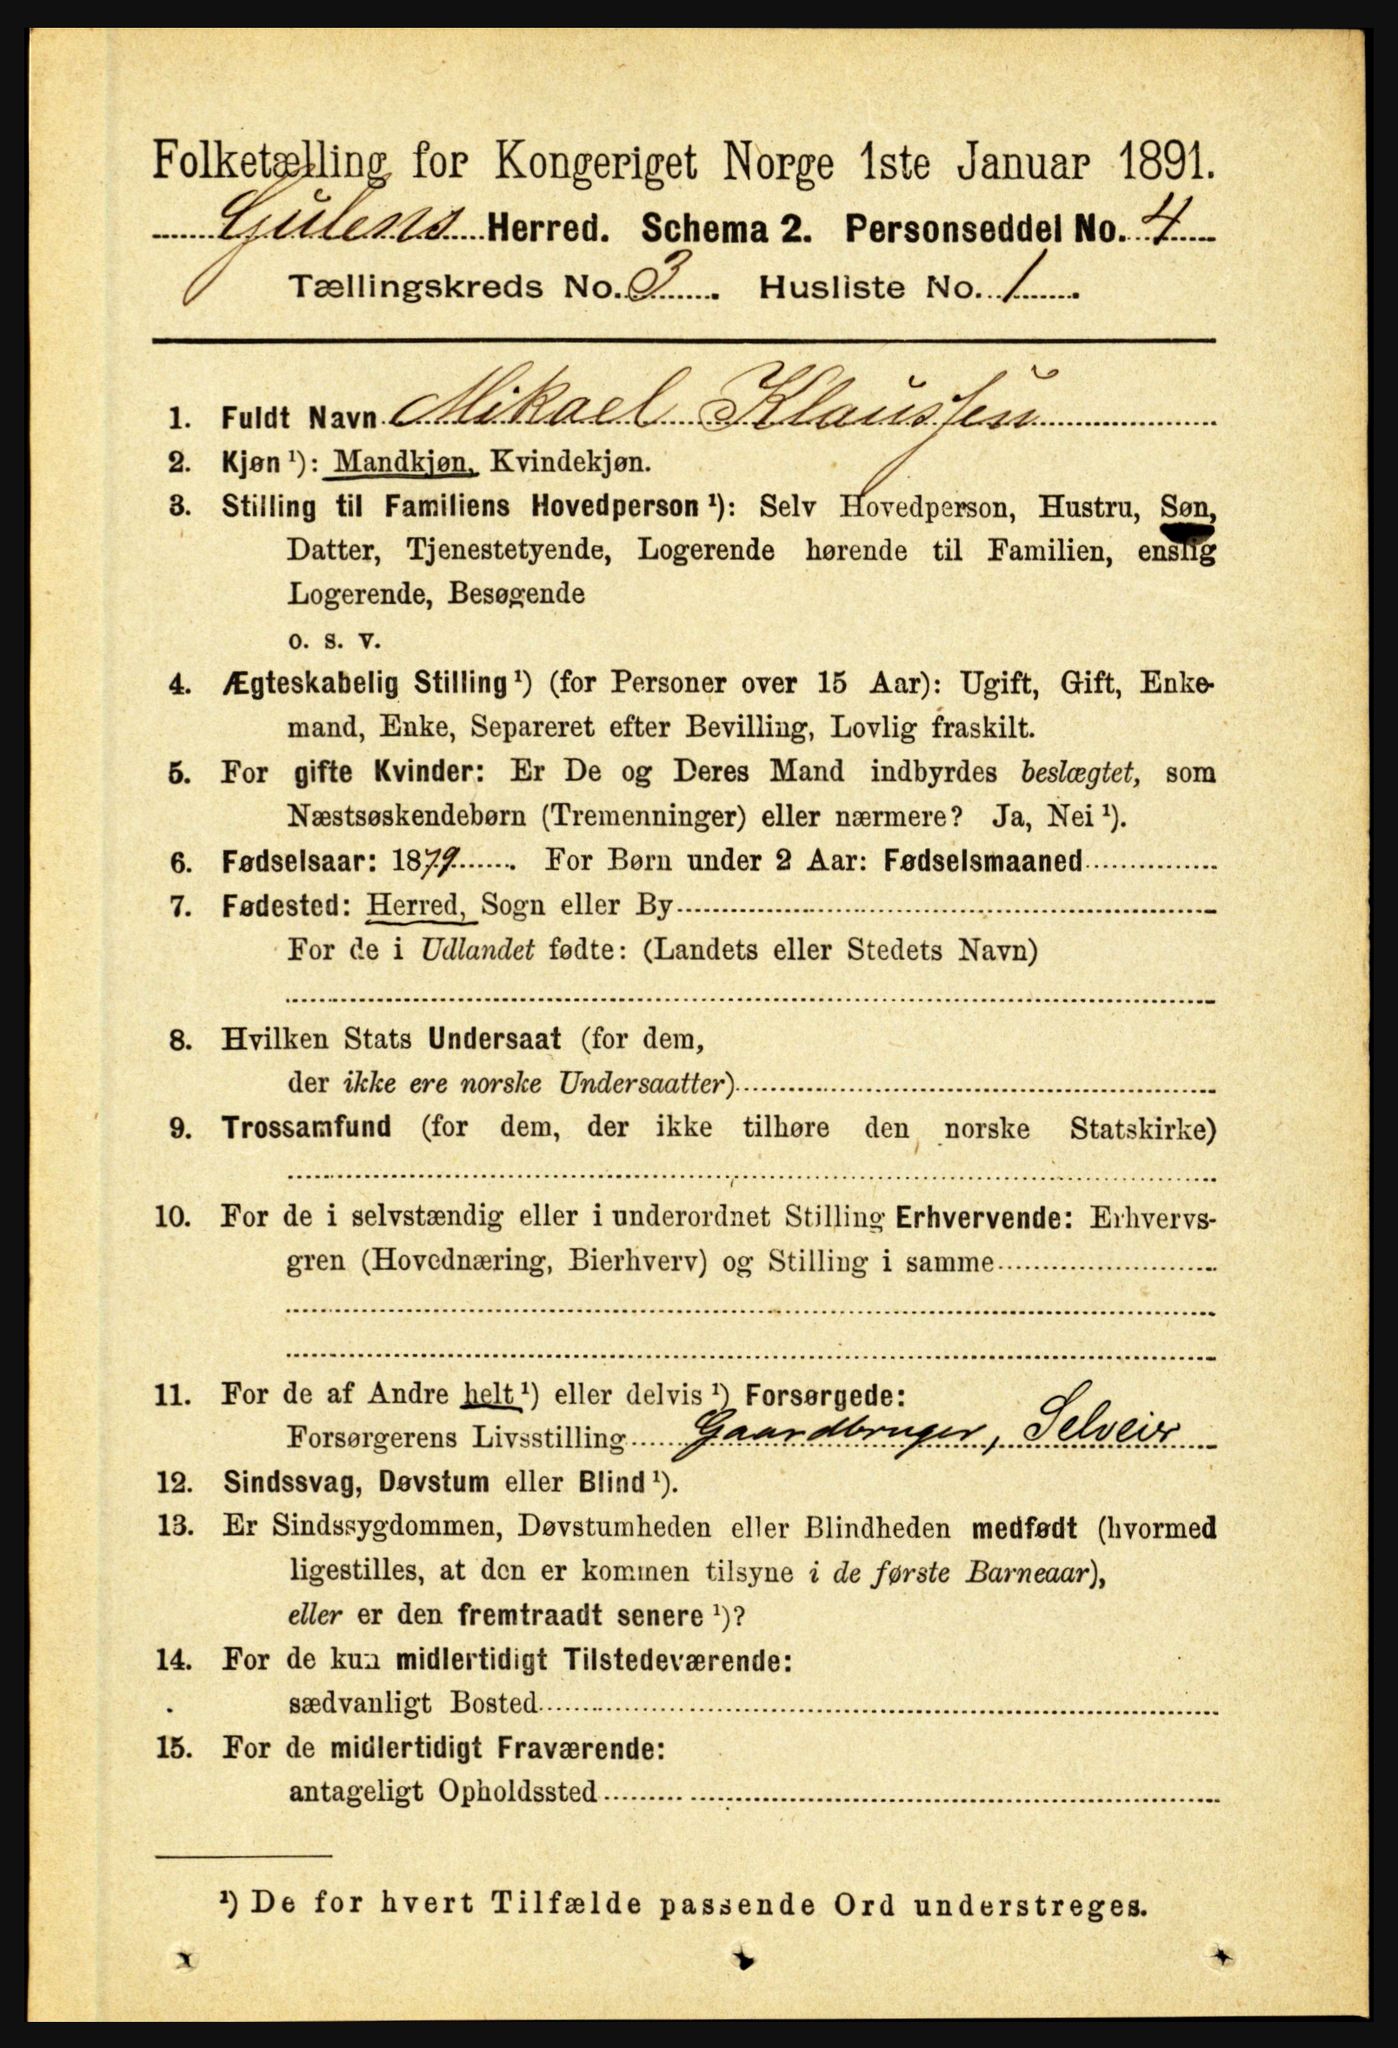 Folketælling for Kongeriget Norge 1ste Januar 1891.
Gulens Herred. Schema 2. Personseddel No. 4
Tællingskreds No. 3. Husliste No. 1.
1. Fuldt Navn Mikael Klaussen
2. Kjøn ¹): Mandkjøn, Kvindekjøn.
3. Stilling til Familiens Hovedperson ¹): Selv Hovedperson, Hustru, Søn,
Datter, Tjenestetyende, Logerende hørende til Familien, enslig
Logerende, Besøgende
o. s. v.
4. Ægteskabelig Stilling ¹) (for Personer over 15 Aar): Ugift, Gift, Enke-
mand, Enke, Separeret efter Bevilling, Lovlig fraskilt.
5. For gifte Kvinder: Er De og Deres Mand indbyrdes beslægtet, som
Næstsøskendebørn (Tremenninger) eller nærmere? Ja, Nei ¹).
6. Fødselsaar: 1879. For Børn under 2 Aar: Fødselsmaaned
7. Fødested: Herred, Sogn eller By
For de i Udlandet fødte: (Landets eller Stedets Navn)
8. Hvilken Stats Undersaat (for dem,
der ikke ere norske Undersaatter)
9. Trossamfund (for dem, der ikke tilhøre den norske Statskirke)
10. For de i selvstændig eller i underordnet Stilling Erhvervende: Erhvervs-
gren (Hovednæring, Bierhverv) og Stilling i samme
11. For de af Andre helt ¹) eller delvis ¹) Forsørgede:
Forsørgerens Livsstilling Gaardbruger, Selveier
12. Sindssvag, Døvstum eller Blind ¹).
13. Er Sindssygdommen, Døvstumheden eller Blindheden medfødt (hvormed
ligestilles, at den er kommen tilsyne i de første Barneaar),
eller er den fremtraadt senere ¹)?
14. For de kun midlertidigt Tilstedeværende:
sædvanligt Bosted
15. For de midlertidigt Fraværende:
antageligt Opholdssted
¹) De for hvert Tilfælde passende Ord understreges.